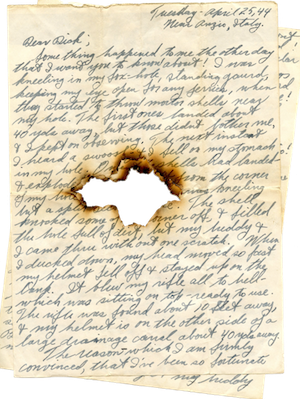 Tuesday - April 25, 44
Near Anzio, Italy.
Dear Dick;
Some thing happened to me the other day
that I want you to know about! I was
kneeling in my fox-hole, standing guard,
keeping my eye open for any Jerries, when
they started to throw mortor shells near
my hole. The first ones landed about
40 yds away, but those didn't bother me,
& I kept on observing. The next instant
I heard a swoosh, & fell on my stomach
in my hole. shell had landed
& exploded from the corner
of my hole kneeling
but a sp The shell
knocked some corner off, & filled
the hole full of dirt, but my buddy &
I came thru without one scratch. When
I ducked down, my head moved so fast
my helmet fell off & stayed up on the
bank. It blew my rifle all to hell
which was sitting on top-ready to use.
The rifle was found about 10 feet away,
& my helmet is on the other side of a
large drainage canal about 40 yds away.
The reason which I am firmly
convinced, that I've been so fortunate
my buddy